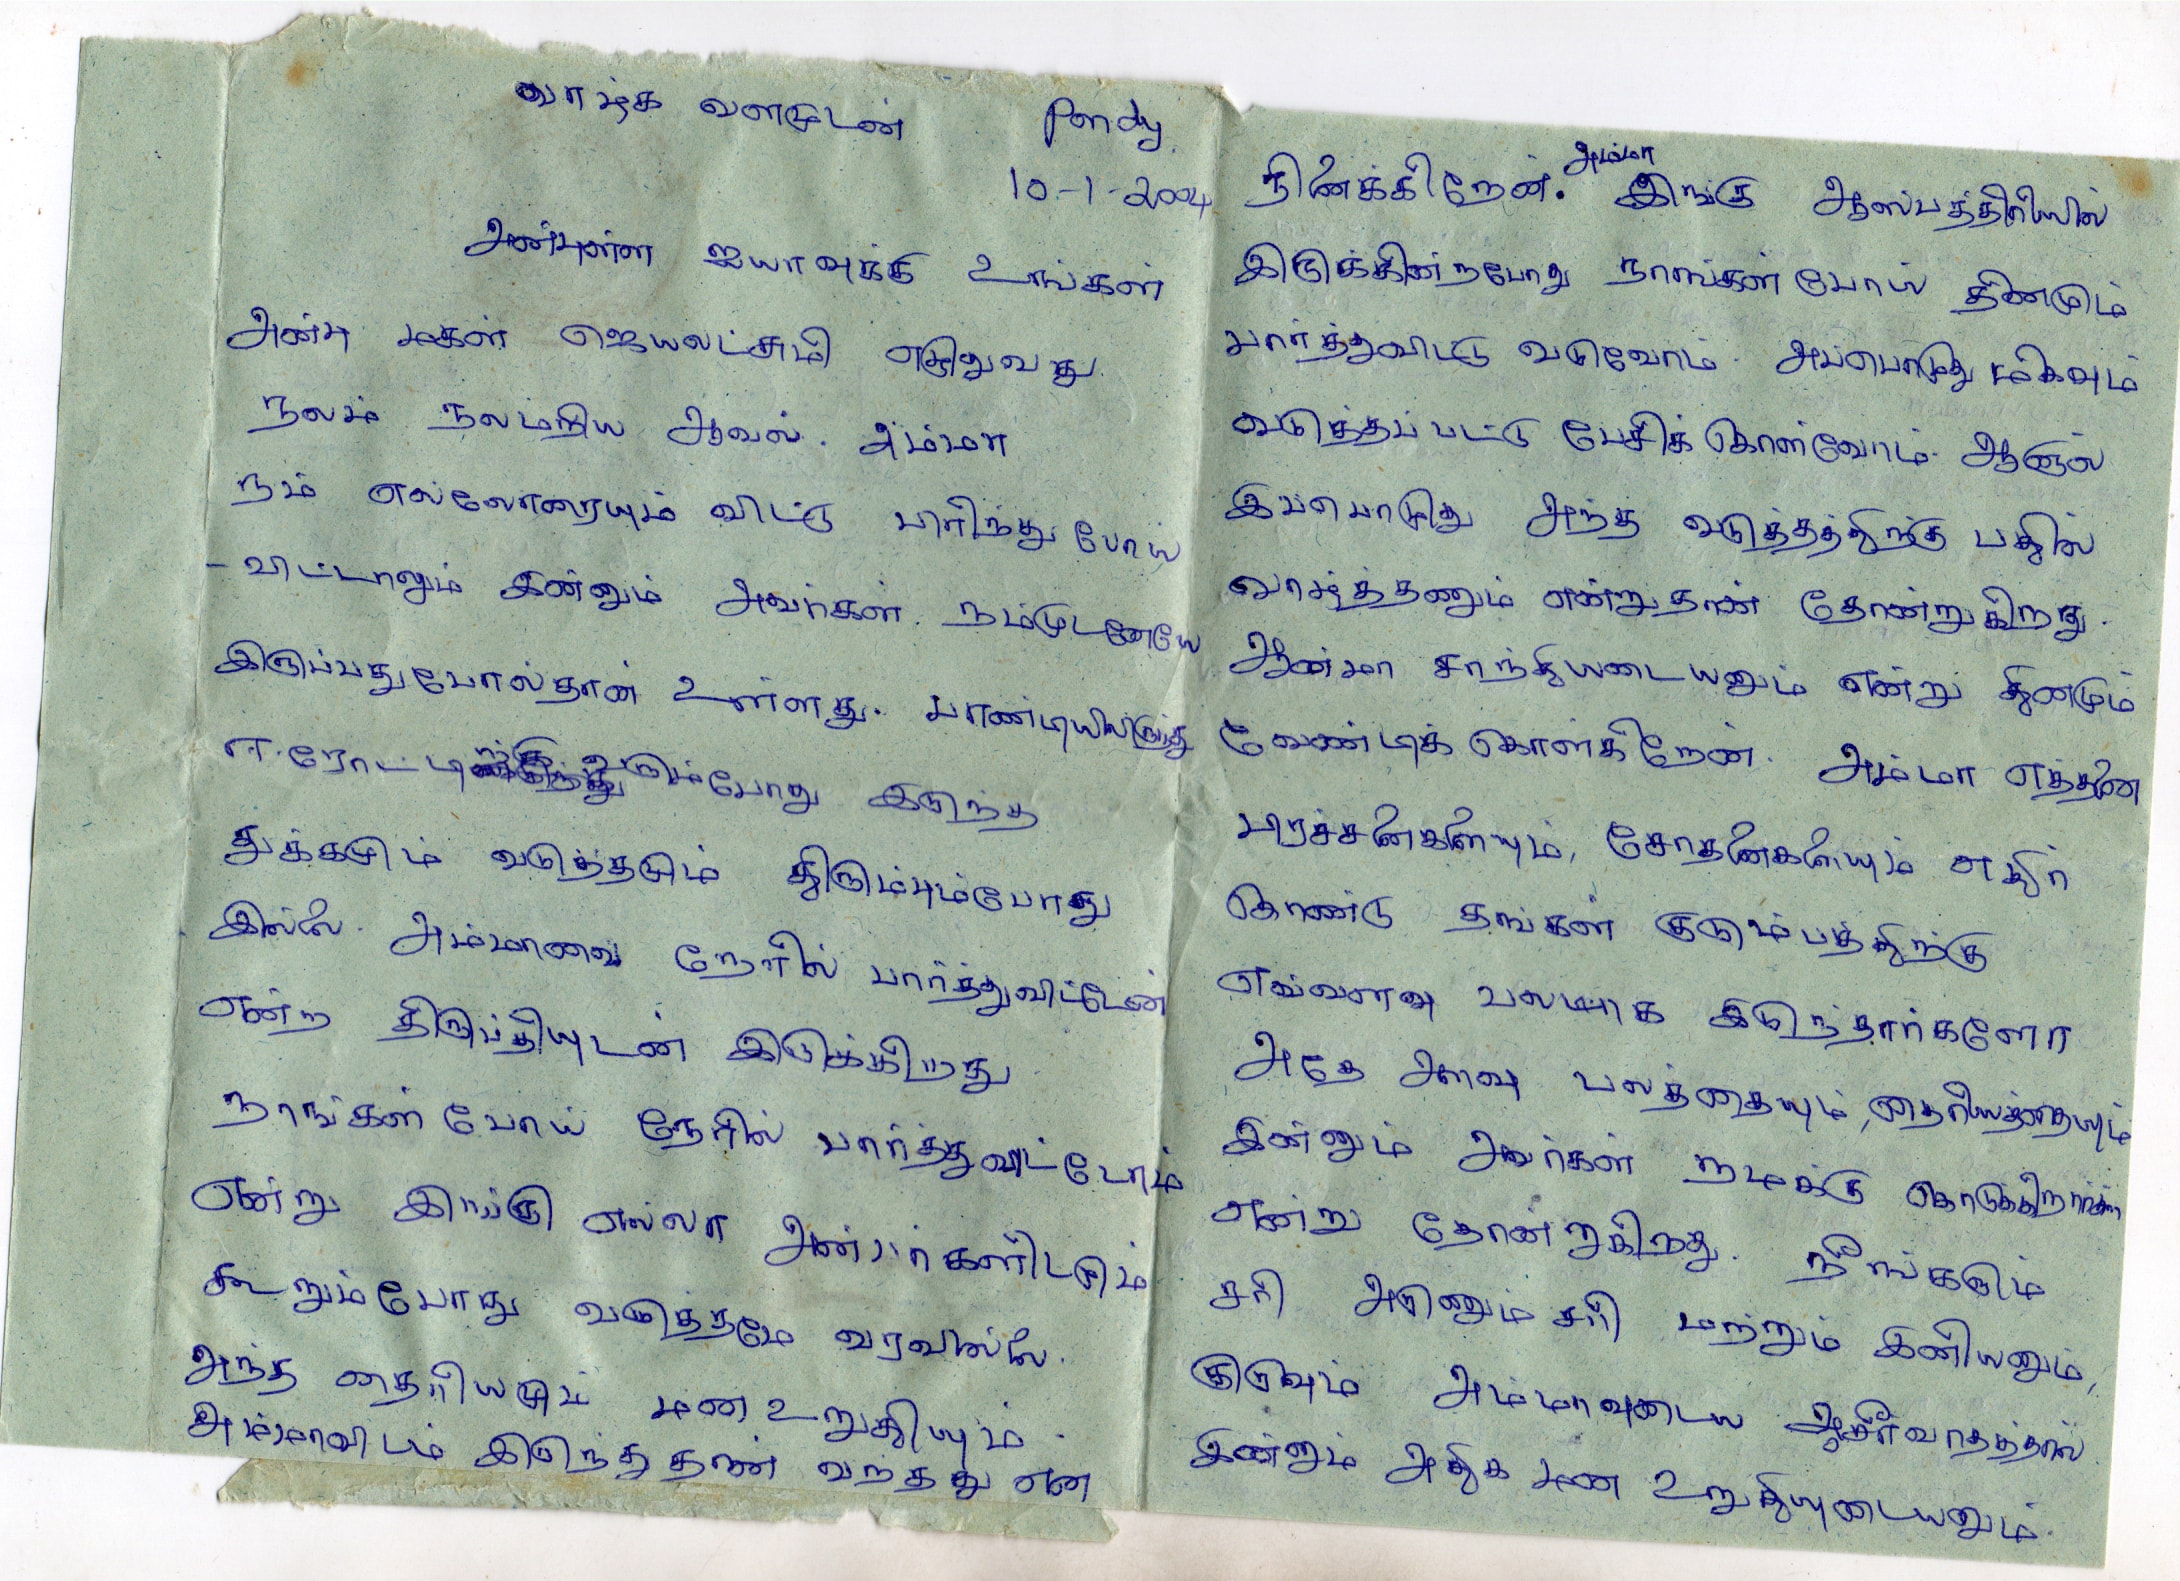 வாழ்க வளமுடன் Pondy
10-1-2004
அன்புள்ள ஐயாவுக்கு உங்கள்
அன்பு மகள் ஜெயலட்சுமி எழுதுவது.
நலம் நலமறிய ஆவல். அம்மா
நம் எல்லோரையும் விட்டு பிரிந்து போய்
- விட்டாலும் இன்னும் அவர்கள். நம்முடனேயே
இருப்பதுபோல்தான் உள்ளது. பாண்டியிலிருந்து
ஈ.ரோட்டிற்கு வரும்போது இருந்த
துக்கமும் வருத்தமும் திரும்பும்போது
இல்லை. அம்மாவை நேரில் பார்த்துவிட்டேன்
என்ற திருப்தியுடன் இருக்கிறது
நாங்கள் போய் நேரில் பார்த்துவிட்டோம்
என்று இங்கு எல்லா அன்பர்களிடமும்
கூறும்போது வருத்தமே வரவில்லை.
அந்த தைரியமும் மன உறுதியும்.
அம்மாவிடம் இருந்துதான் வந்தது என
நினைக்கிறேன். அம்மா இங்கு ஆஸ்பத்திரியில்
இருக்கின்றபோது நாங்கள் போய் தினமும்
பார்த்துவிட்டு வருவோம். அப்பொழுது மிகவும்
வருத்தப்பட்டு பேசிக் கொள்வோம். ஆனால்
இப்பொழுது அந்த வருத்தத்திற்கு பதில்
வாழ்த்தணும் என்றுதான் தோன்றுகிறது.
ஆன்மா சாந்தியடையனும் என்று தினமும்
வேண்டிக் கொள்கிறேன். அம்மா எத்தனை
பிரச்சனைகளையும், சோதனைகளையும் எதிர்
கொண்டு தங்கள் குடும்பத்திற்கு
எவ்வளவு பலமாக இருந்தார்களோ
அதே அளவு பலத்தையும், தைரியத்தையும்
இன்னும் அவர்கள் நமக்கு கொடுக்கிறார்கள்
என்று தோன்றுகிறது. நீங்களும்
சரி அருணும் சரி மற்றும் இனியனும்,
குருவும் அம்மாவுடைய ஆசீர்வாதத்தால்
இன்னும் அதிக மன உறுதியுடையனும்.